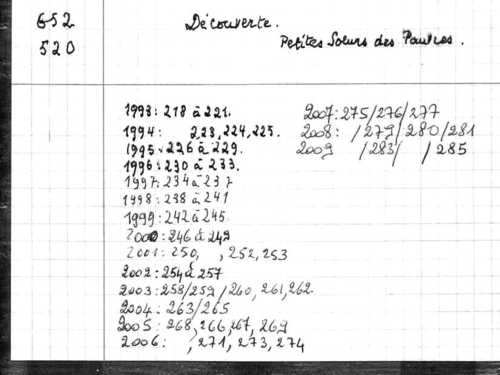 652
520
Découverte.
Petites Sœurs des Pauvres.
1993: 218 à 221.
1994: 223, 224, 225.
1995: 226 à 229.
1996: 230 à 233.
1997: 234 à 237
1998: 238 à 241
1999: 242 à 245
2000: 246 à 249
2001: 250, , 252, 253
2002: 254 à 257
2003: 258/259/260, 261, 262
2004: 263/265
2005: 268, 266, 267, 269
2006: , 271, 273, 274
2007: 275/276/277
2008: /279/280/281
2009 /283/ /285